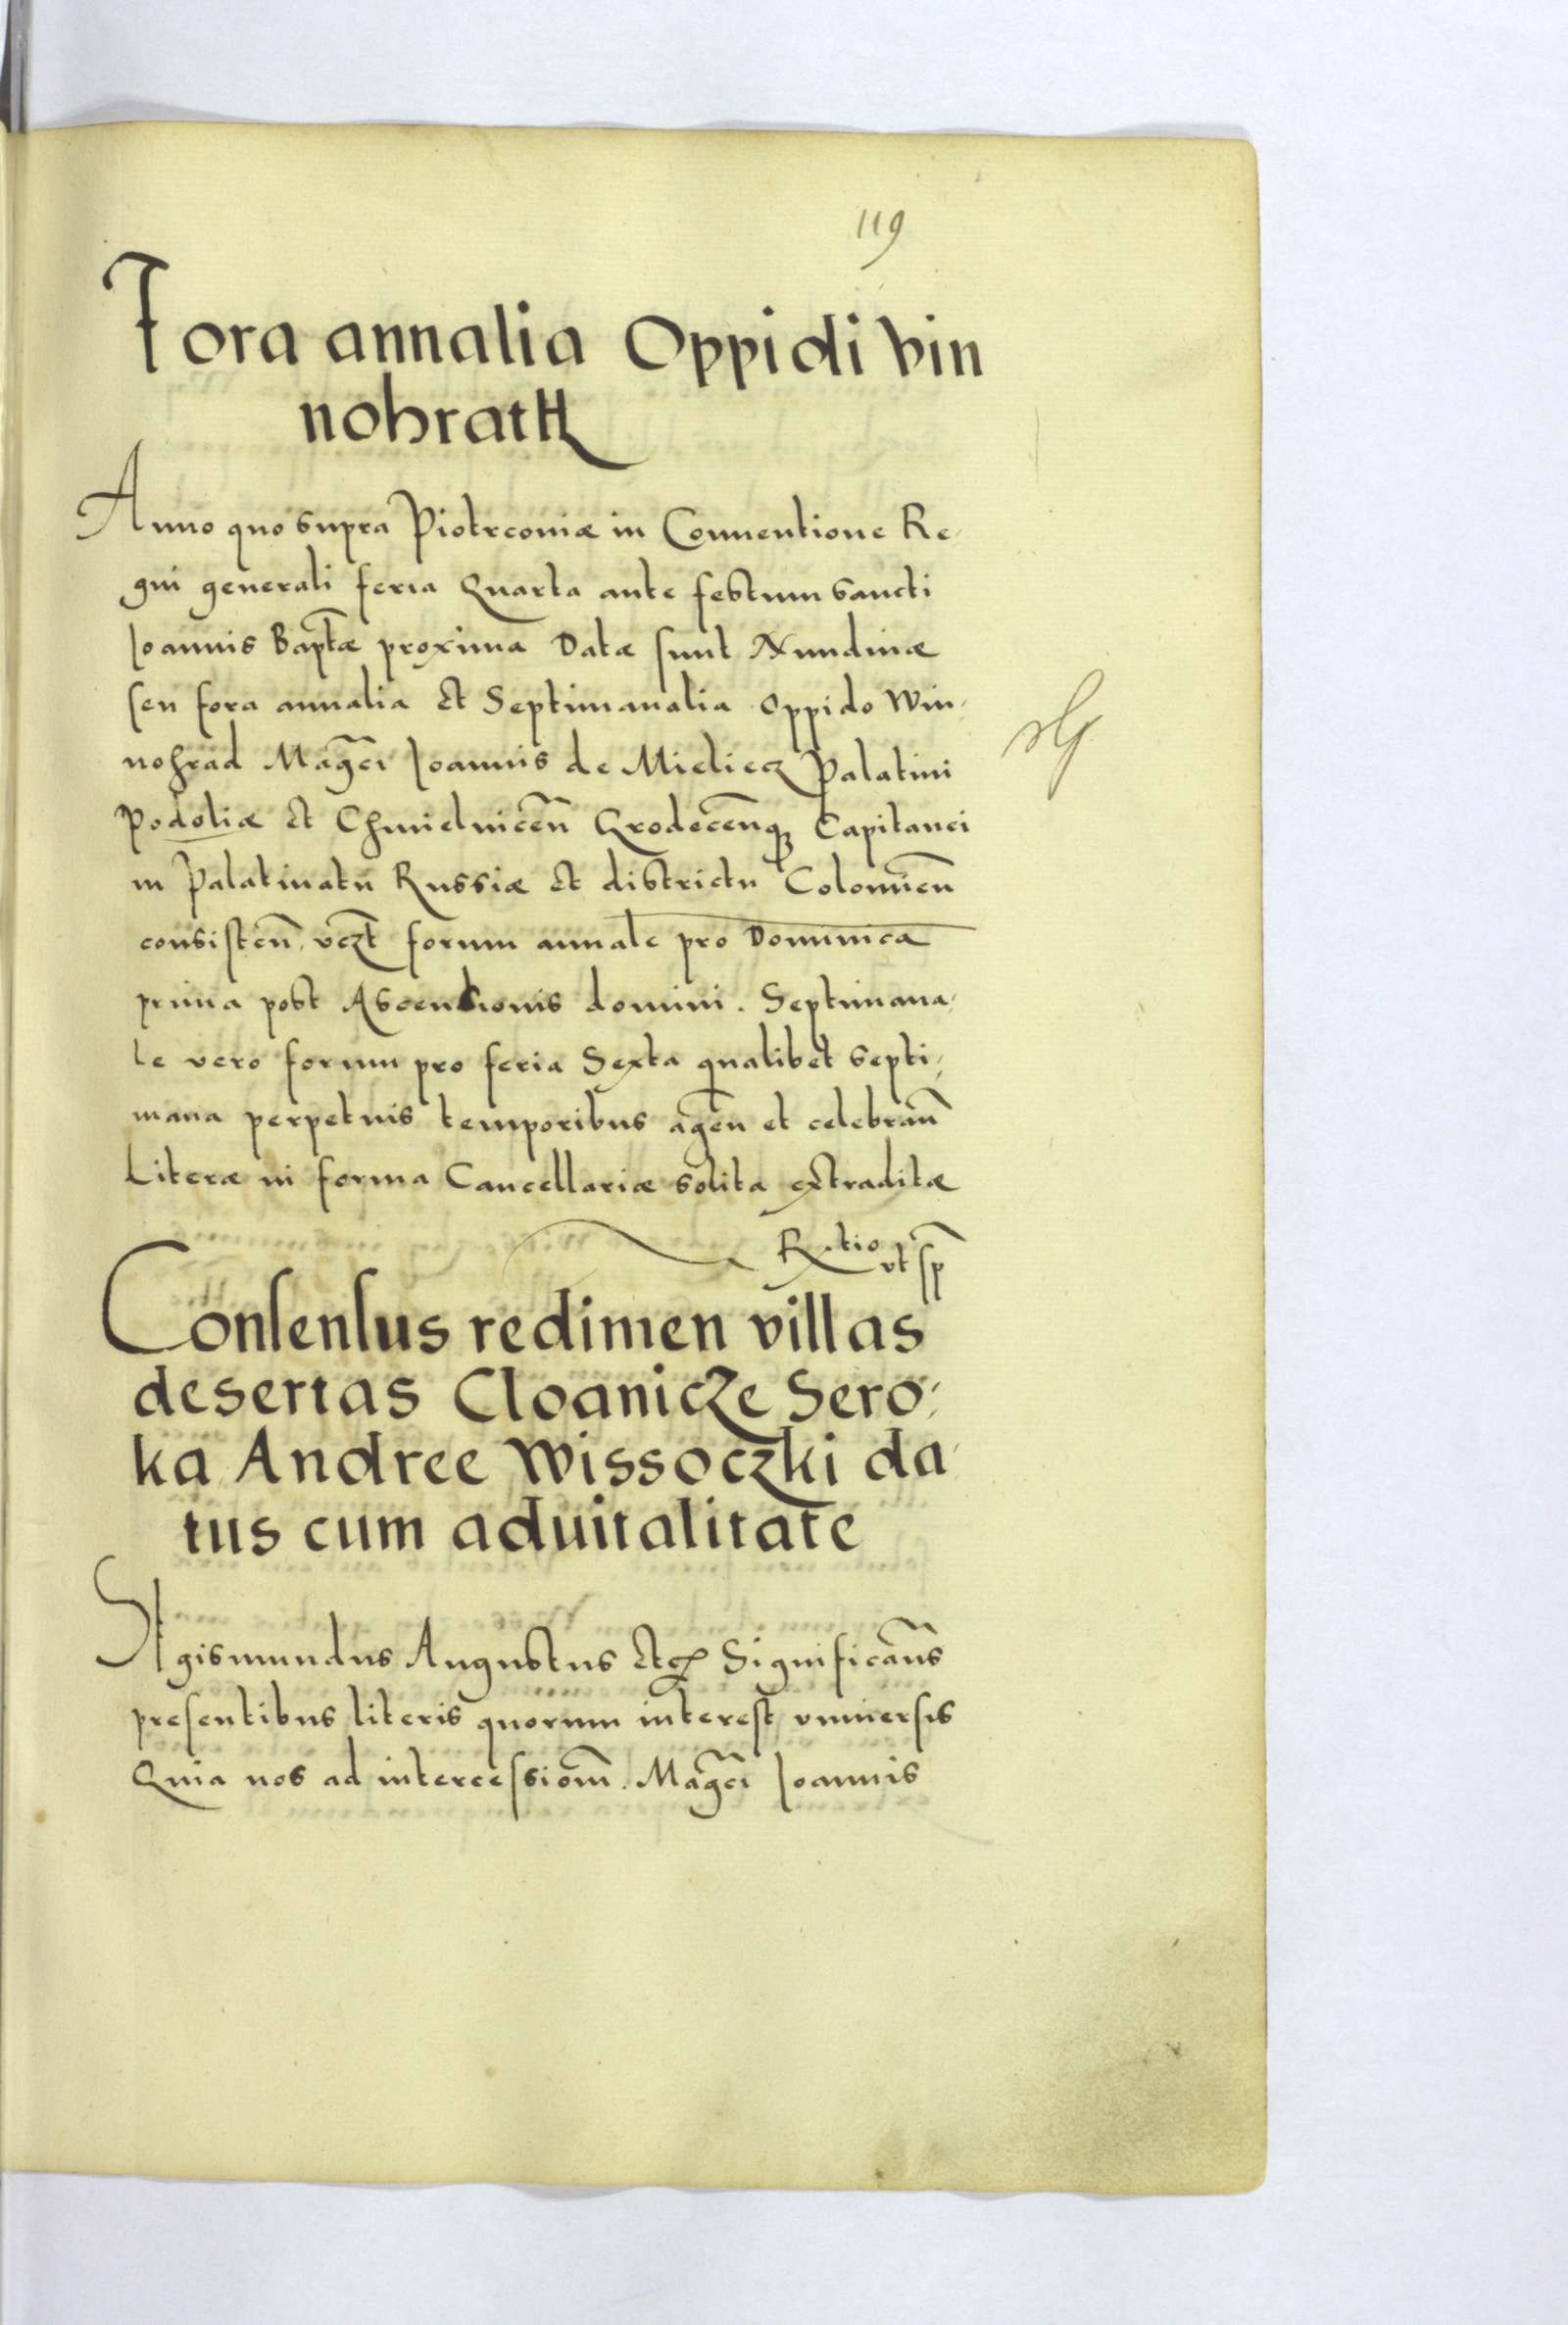 119
Fora annalia Oppidi Vin
nohrath
Anno quo supra Piotrcoviæ in Conventione Re-
gni generali feria Quarta ante festum sancti
Joannis Baptæ proxima Datæ sunt Nundinæ
seu fora annalia et Septimanalia oppido Win-
nohrad Magci Joannis de Mielicz Palatini
Podoliæ et Chmielnicen̄ Grodecen̄q; Capitanei
in Palatinatu Russiæ et districtu Colomien̄
consisten̄ vczt forum annale pro Dominica
prima post Ascensionis domini. Septimana-
le vero forum pro feria Sexta qualibet septi-
mana perpetuis temporibus agen̄ et celebran̄
Literæ in forma Cancellariæ solita extraditæ
R..tio
vt sp
Consensus redimen villas
desertas Cloanicze Sero-
ka Andree Wissoczki da-
tus cum aduitalitate
Sigismundus Augustus etcæ Significam̄s
presentibus literis quorum interest vniversis
Quia nos ad intercessiom̄. Magci Joannis